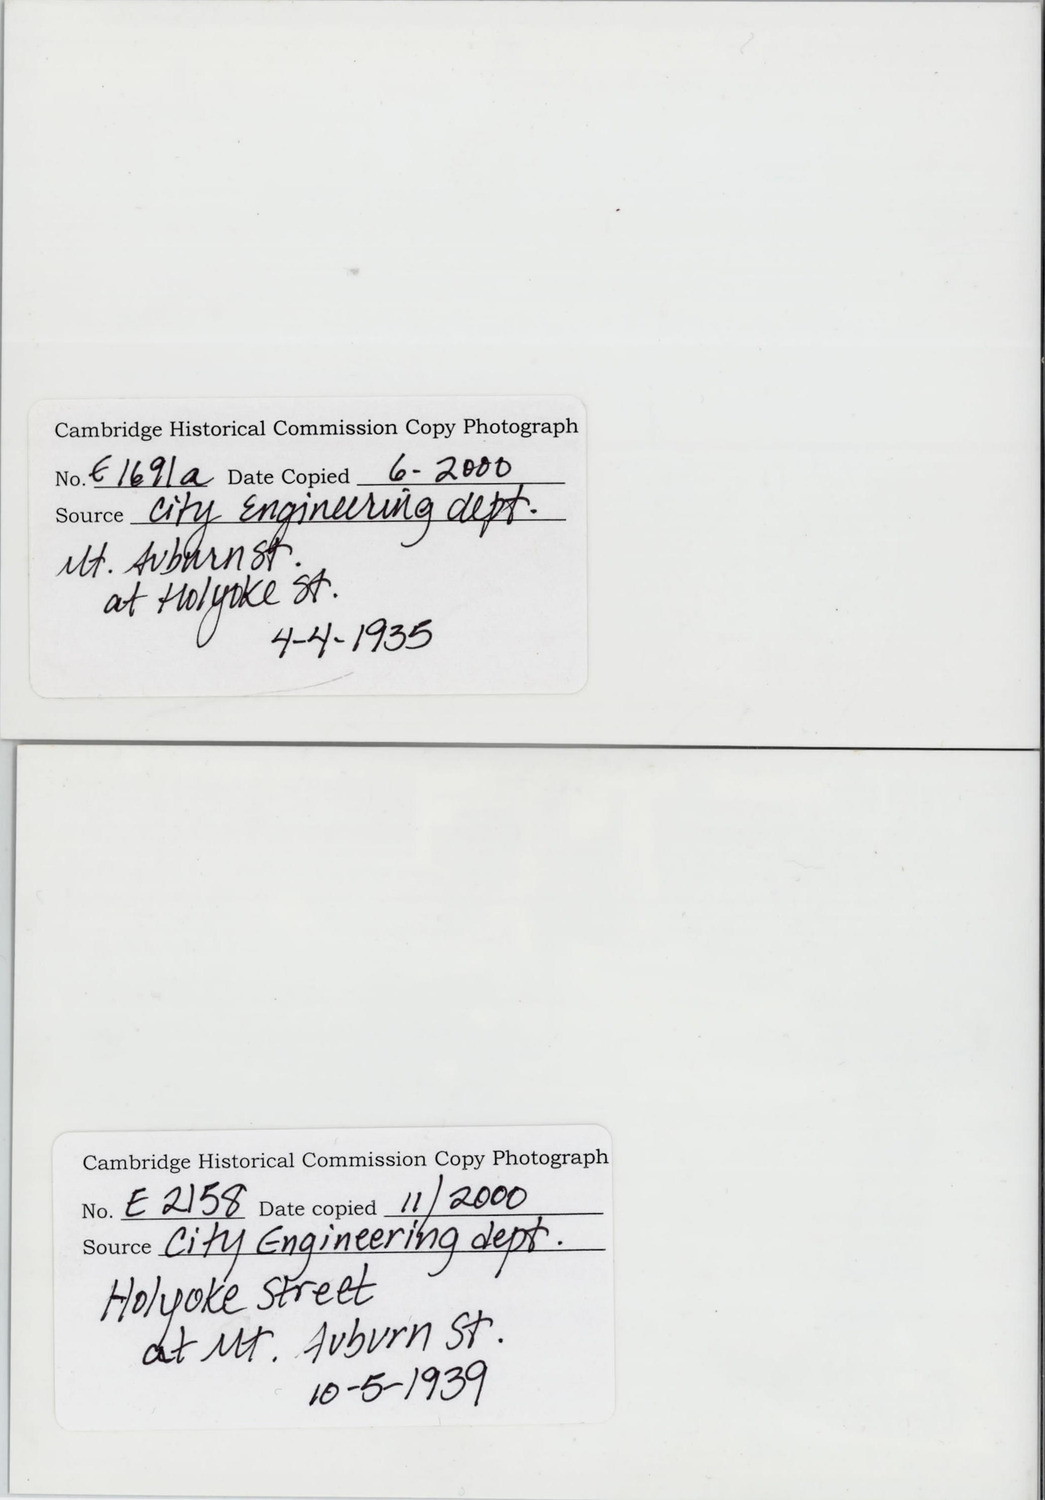 Cambridge Historical Commission Copy Photograph
No. E1691a Date Copied 6-2000
Source City Engineering dept.
Mt. Auburn St.
at Holyoke St.
4-4-1935
Cambridge Historical Commission Copy Photograph
No. E 2158 Date copied 11/2000
Source City Engineering dept.
Holyoke Street
at Mt. Auburn St.
10-5-1939